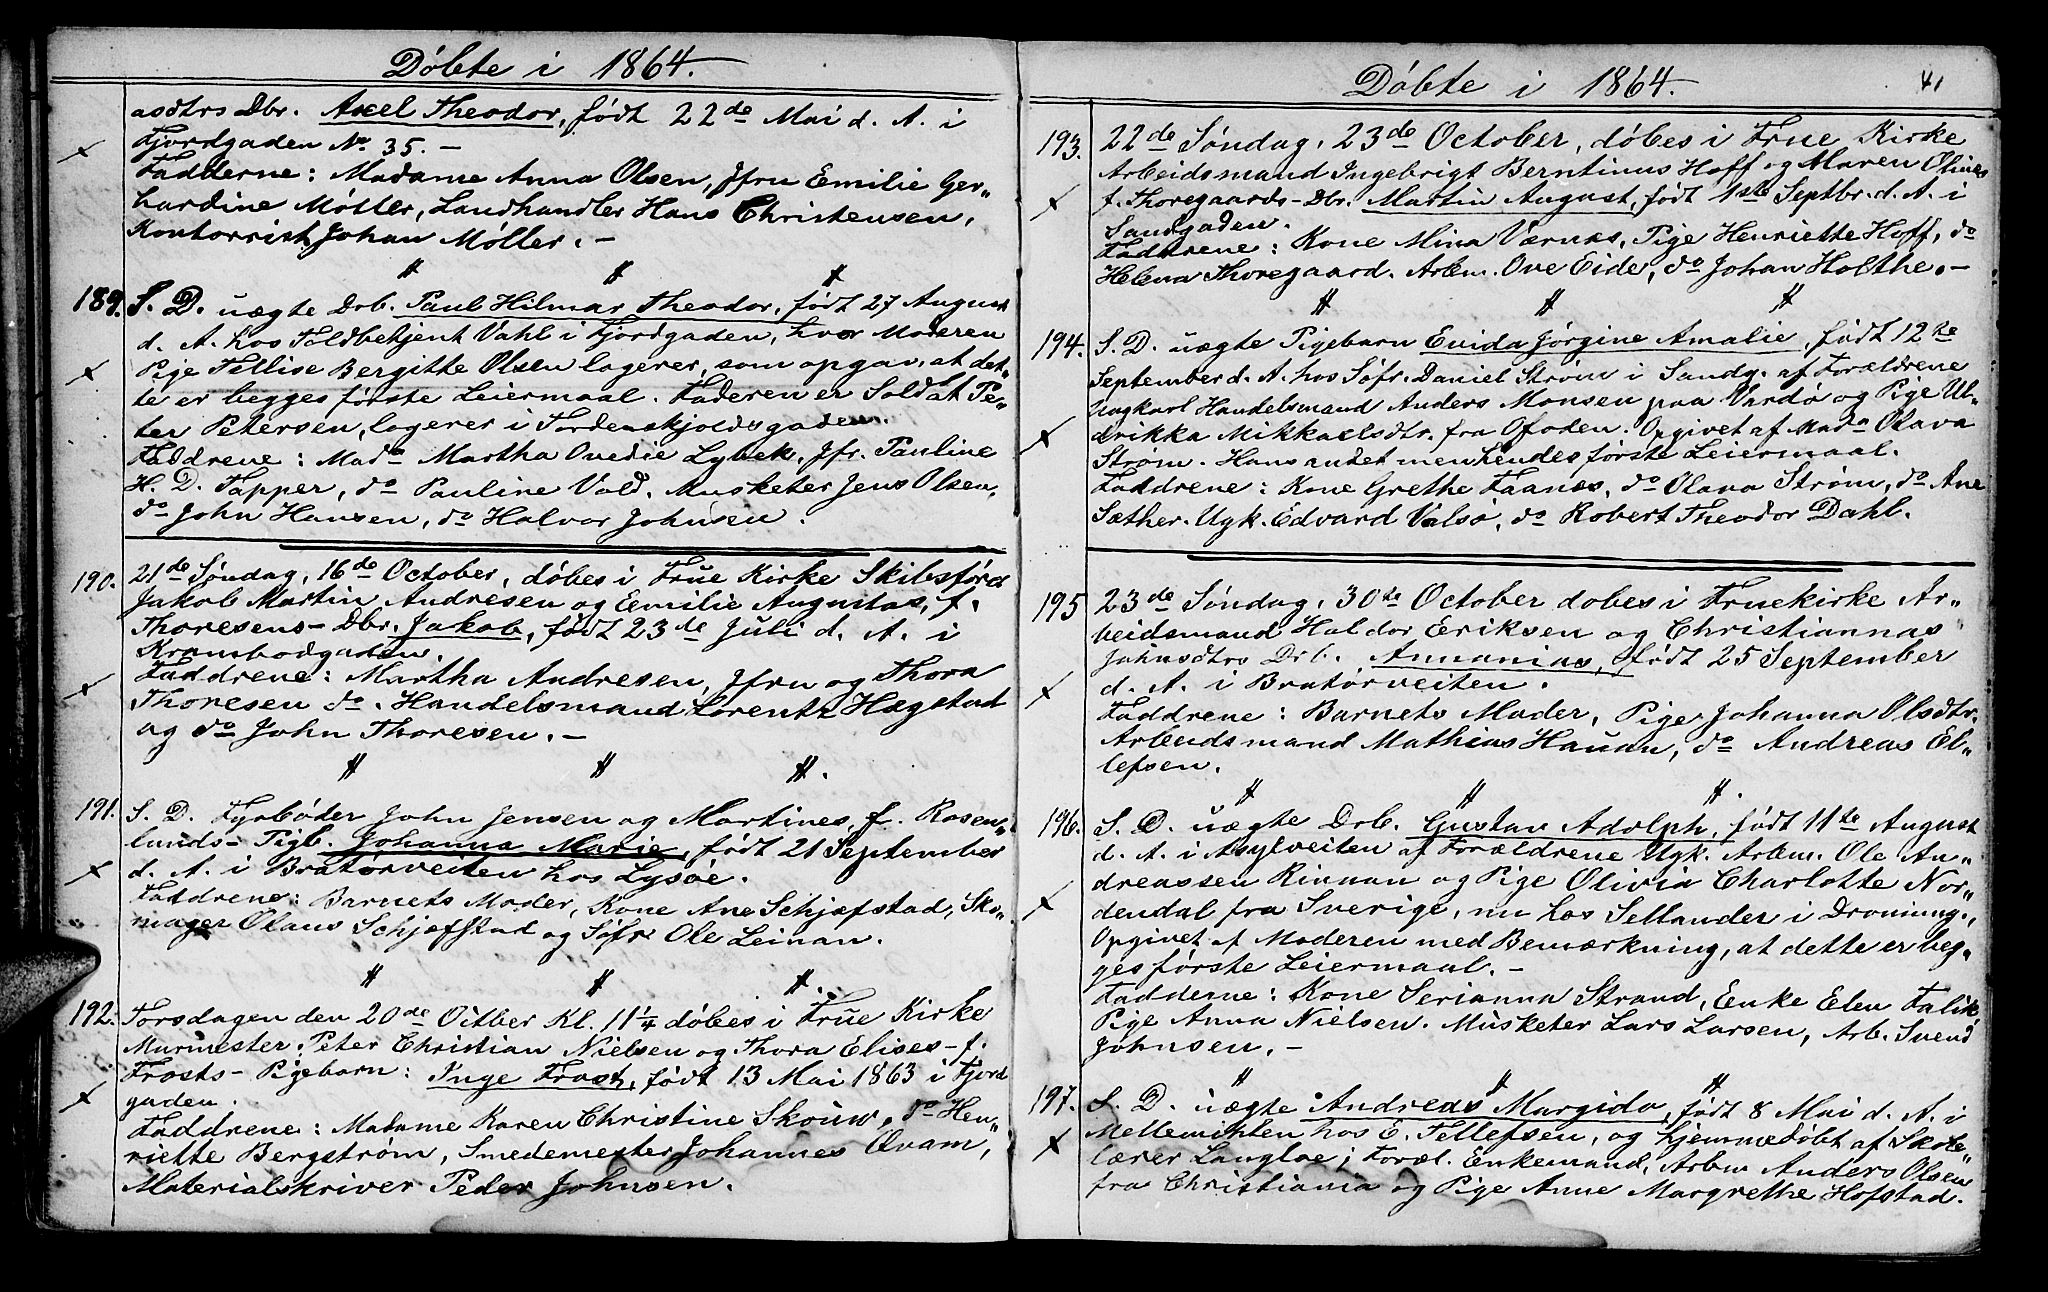 Döbte i 1864.
asdtrs Dbr. Axel Theodor, födt 22de Mai d. A. i
Fjordgaden No. 35. –
Fadderne: Madame Anna Olsen, Jfru Emilie Ger„
hardine Möller, Landhandler Hans Christensen,
Kontorrist Johan Möller. –
189. S. D. uægte Drb. Paul Hilmar Theodor, födt 27 August
d. A. hos Toldbetjent Vahl i Fjordgaden, hvor Moderen
Pige Fellise Bergitte Olsen logerer, som opgav, at det„
te er begges förste Leiermaal. Faderen er Soldat Pe„
ter Petersen, logerer i Tordenskjoldsgaden.
Faddrene: Mada Martha Ovedie Lybek, Jfr. Pauline
H. D. Tapper, do Pauline Vold. Musketer Jens Olsen,
do John Hansen, do Halvor Johnsen.
190. 21de Söndag, 16de October, döbes i Frue Kirke Skibsförer
Jakob Martin Andresen og Emilie Augustas, f.
Thoresens – Dbr. Jakob, födt 23de Juli d. A. i
Krambodgaden.
Faddrene: Martha Andresen, Jfru og Thora
Thoresen do. Handelsmand Lorentz Hægstad
og do John Thoresen. –
191. S. D. Fyrböder John Jensen og Martines, f. Rosen„
lunds – Pigb. Johanna Marie, födt 21 September
d. A. i Bratörveiten hos Lysöe.
Faddrene: Barnets Moder, Kone Ane Schjefstad, Sko„
mager Olaus Schjefstad og Söfr Ole Leinan.
192. Torsdagen den 20de Octber Kl. 11 1/4 döbes i Frue Kirke
Murmester Peter Christian Nielsen og Thora Elises – f.
Frosts – Pigebarn: Inge Frost, födt 13 Mai 1863 i Fjord
gaden.
Faddrene: Madame Karen Christine Skouw, do Hen„
riette Bergström, Smedemester Johannes Qvam,
Materialskriver Peder Johnsen.
Döbte i 1864.
41
193. 22de Söndag, 23de October, döbes i Frue Kirke
Arbeidsmand Ingebrigt Berntinus Hoff og Maren Olines
f. Thoregaards – Dbr. Martin August, födt 1ste Septbr. d. A. i
Sandgaden.
Faddrene: Kone Mina Værnes, Pige Henriette Hoff, do
Helena Thoregaard. Arbm. Ove Eide, do Johan Holthe. –
194. S. D. uægte Pigebarn Evida Jörgine Amalie, födt 12te
September d. A. hos Söfr. Daniel Ström i Sandg. af Forældrene
Ungkarl Handelsmand Anders Monsen paa Vardö og Pige Ul„
drikka Mikkaelsdtr. fra Ofoden. Opgivet af Mada Olava
Ström. Hans andet men hendes förste Leiermaal.
Faddrene: Kone Grethe Faanes, do Olava Ström, do Ane
Sæther. Ugk. Edvard Valsö, do Robert Theodor Dahl.
195 23de Söndag, 30te October dobes i Fruekirke Ar„
beidsmand Haldor Eriksen og Christiannas
Johnsdtrs Drb. Annanias, födt 25 September
d. A. i Bratörveiten.
Faddrene: Barnets Moder, Pige Johanna Olsdtr.
Arbeidsmand Mathias Hauan, do Andreas El„
lefsen.
196. S. D. uægte Drb. Gustav Adolph, födt 11te August
d. A. i Asylveiten af Forældrene Ugk. Arbm. Ole An„
dreassen Rinnan og Pige Olivia Charlotte Nor„
dendal fra Sverige, nu hos Sellander i Droning.,
Opgivet af Moderen med Bemærkning, at dette er beg„
ges förste Leiermaal. –
Fadderne: Kone Serianna Strand, Enke Elen Falik,
Pige Anna Nielsen. Musketer Lars Larsen, Arb. Svend
Johnsen. –
197. S. D. uægte Andreas Margido, födt 8 Mai d. A. i
Mellemihlen hos E. Tellefsen, og hjemmedöbt af Skole„
lærer Langloe; Foræl. Enkemand, Arbm Anders Olsen
fra Christiania og Pige Anne Margrethe Hofstad.